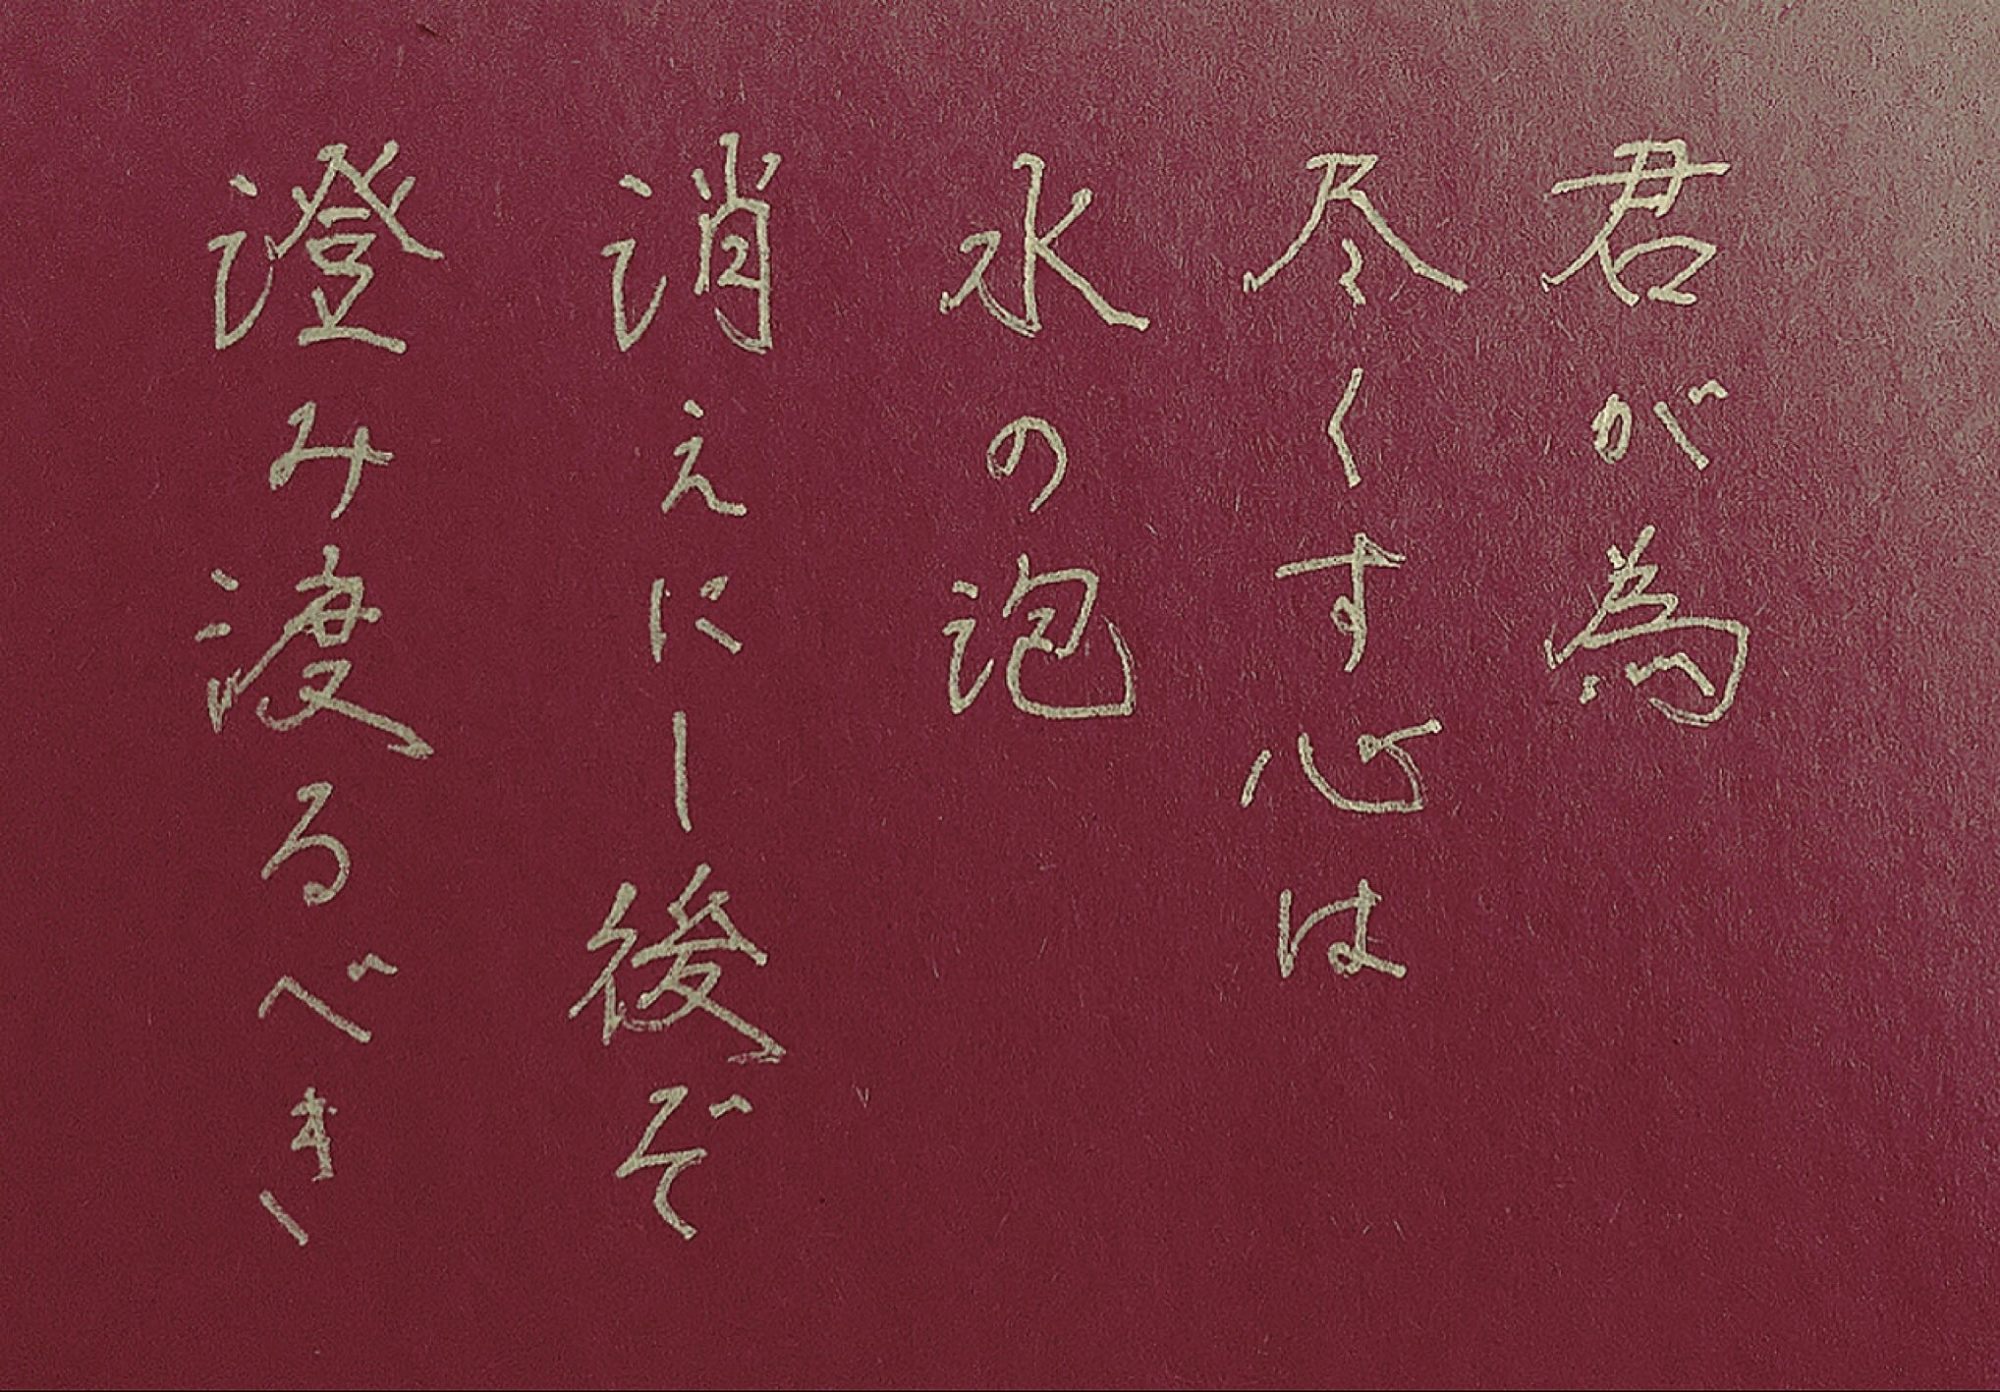 君が為
尽くす心は
水の泡
消えにし後ぞ
澄み渡るべき